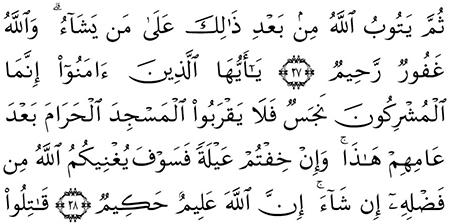 ثُمَّ يَتُوبُ ٱللَّهُ مِنۢ بَعْدِ ذَٰلِكَ عَلَىٰ مَن يَشَآءُ ۗ وَٱللَّهُ
غَفُورٌ رَّحِيمٌ ٢٧ يَـٰٓأَيُّهَا ٱلَّذِينَ ءَامَنُوٓا۟ إِنَّمَا
ٱلْمُشْرِكُونَ نَجَسٌ فَلَا يَقْرَبُوا۟ ٱلْمَسْجِدَ ٱلْحَرَامَ بَعْدَ
عَامِهِمْ هَـٰذَا ۚ وَإِنْ خِفْتُمْ عَيْلَةً فَسَوْفَ يُغْنِيكُمُ ٱللَّهُ مِن
فَضْلِهِۦٓ إِن شَآءَ ۚ إِنَّ ٱللَّهَ عَلِيمٌ حَكِيمٌ ٢٨ قَـٰتِلُوا۟